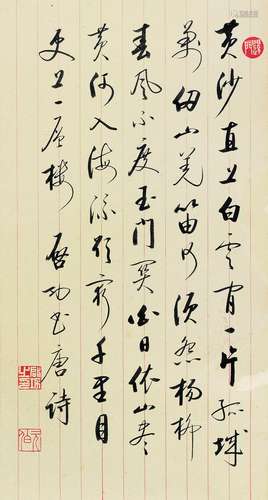 黄沙直上白雲間一片孤城
萬仞山羌笛何須怨楊柳
春風不度玉門關白日依山盡
黄河入海流欲窮千里目
更上一層樓　啟功書唐詩